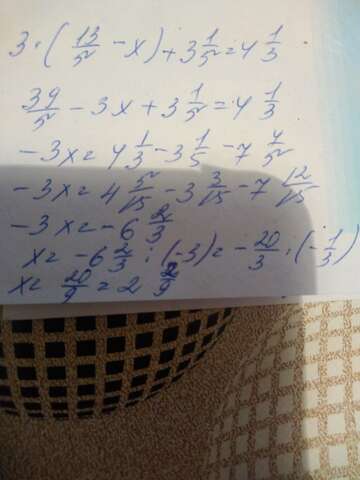 3·(13/5 - x) + 3 1/5 = 4 1/3
39/5 - 3x + 3 1/5 = 4 1/3
-3x = 4 1/3 - 3 1/5 - 7 4/5
-3x = 4 5/15 - 3 3/15 - 7 12/15
-3x = -6 2/3
x = -6 2/3 : (-3) = -20/3 · (-1/3)
x = 20/9 = 2 2/9